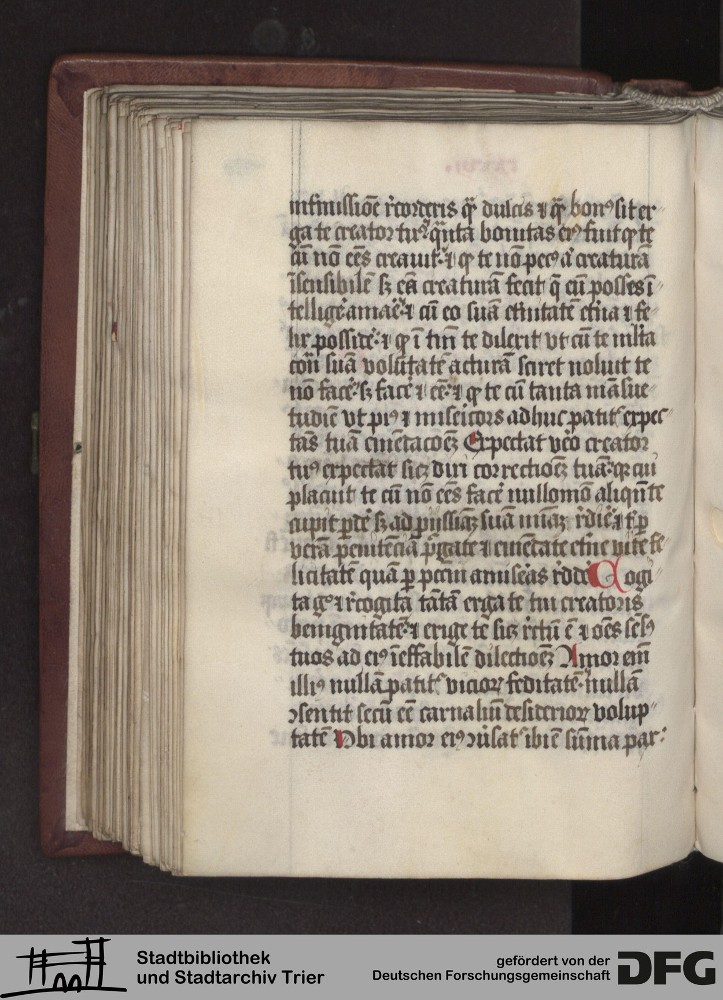 intmissiōe r̄corderis q̄ꝫ dulcis ⁊ q̄ꝫ bonꝰ sit er
ga te creator tuꝰ q̄nta bonitas eiꝰ fuit ꝙ te
cū nō eēs creauit ⁊ ꝙ te nō pecꝰ creaturā
īsensibilē sꝫ eā creaturā fecit q̄ eū posses ī
tellige amare ⁊ cū eo suā et̄nitatē et̄na ⁊ fe
lix posside ⁊ ꝙ ī tm̄ te dilexit vt cū te ml̄ta
cont̄ suā volūtatē acturā sciret noluit te
nō face sꝫ face ⁊ eē ⁊ ꝙ te cū tanta māsue
tudīe vt piꝰ ⁊ misericors adhuc patit᷑ expec
tās tuā emēdacoēꝫ Expectat v̄o creator
tuꝰ expectat sic dixi correctioēꝫ tuā qꝛ cui
placuit te cū nō eēs face nullomō aliqn̄ te
cupit ꝑde sꝫ ad pijssimā suā miaꝫ r̄dire ⁊ ꝑ
verā penitēciā p̄gate ⁊ emēdate et̄ne vite fe
licitatē quā ꝑ pctm̄ amiseas r̄dde Cogi
ta gͦ ⁊ r̄cogita tātā erga te tui creatoris
benignitatē ⁊ erige te sic r̄ctū ē ⁊ oēs sēsꝰ
tuos ad eiꝰ īeffabilē dilectioēꝫ Amor em̄
illiꝰ nullā patit᷑ vicioꝝ feditatē nullā
ꝯsentit secū eē carnaliū desiderioꝝ volup
tatē Vbi amor eiꝰ ꝯūsat᷑ ibi ē sūma pax
Stadtbibliothek
und Stadtarchiv Trier
gefördert von der
Deutschen Forschungsgemeinschaft
DFG